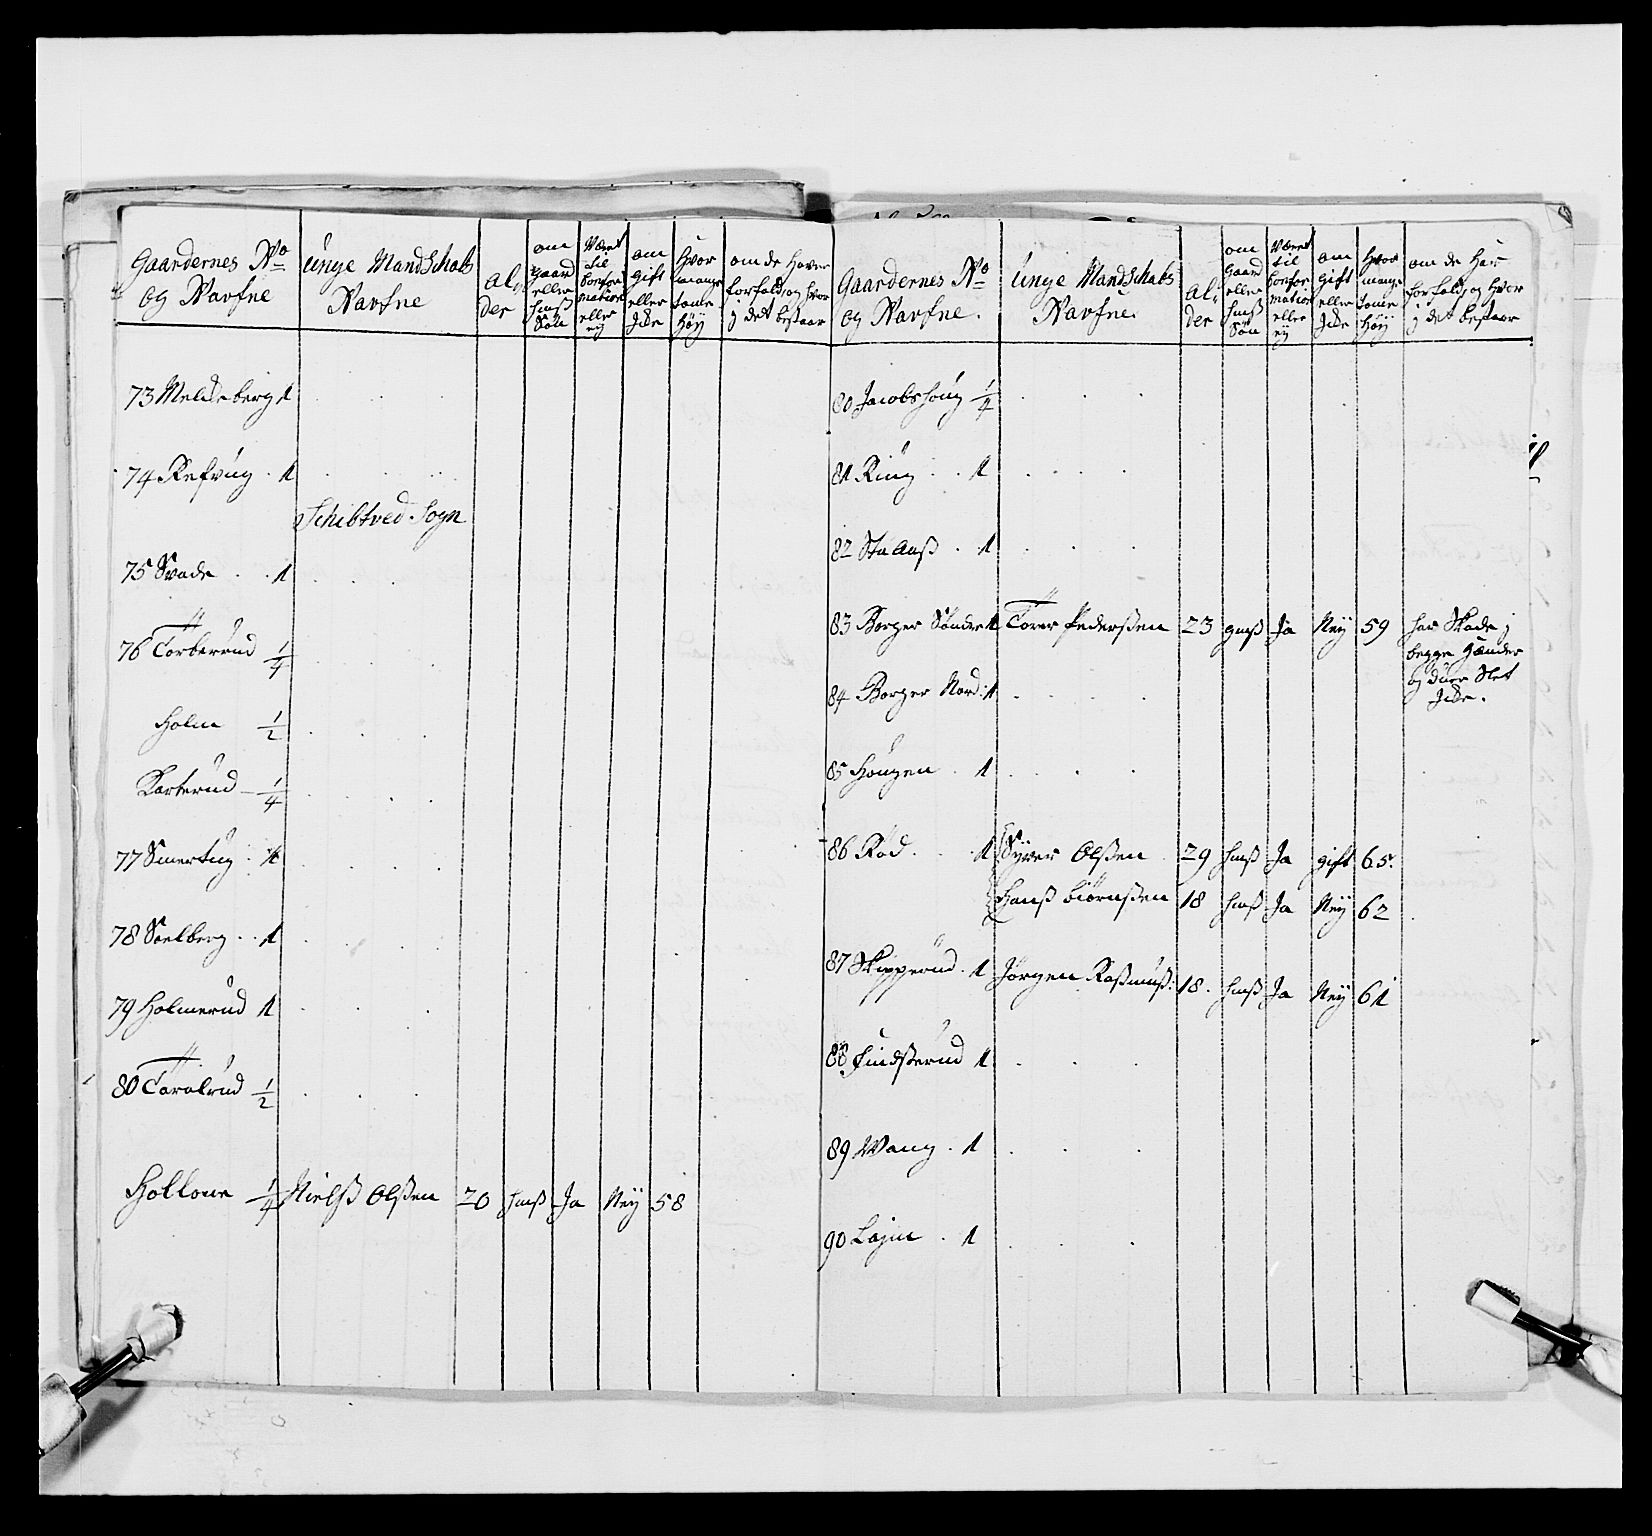 Gaardernes No
og Nafne
unge Mandschabs
Nafne
al,,
der
om
gaard
eller
huuß
Søn
Været
til
Confor
mation
eller
ey
om
gift
eller
Icke
Hvor
mange
tome
høy
om de haver
forfald, og hvor
j det bestaar
73 Melleberg 1
74 Refvüg . 1
Schibtved Sogn
75 Svade . . 1
76 Torberüd 1/4
Holm 1/2
Karterüd 1/4
77 Smertüg . 1
78 Soelberg . . 1
79 Holmerüd 1
80 Taralrüd 1/2
Hollone 1/4 Nielß Olßen 20 huuß Ja Ney 58
Gaardernes No
og Nafne.
unge Mandschabs
Nafne.
al,,
der
om
gaard
eller
huuß
Søn
Været
til
Confor
mation
eller
ey
om
gift
eller
Icke
Hvor
mange
tome
høy
om de har
forfald, og hvor
j det bestaar
80 Jacobshoug 1/4
81 Ring . . 1
82 . 1
83 Borger Søndre 1 Torer Pederßen 23 gaß Ja Ney 59 har Skade j
begge Hænder
og düer Slet
Icke.
84 Borger Nord: 1
85 Hougen . 1
86 Rød . . . 1 Syver Olßen 29 huuß Ja gift 65.
Hanß Biørnßen 18 huuß Ja Ney 62
87 Skipperüd . 1 Jørgen Raßmuß: 18. huuß Ja Ney 61
88 Findsterüd 1
89 Wang . 1
90 Lajm . 1